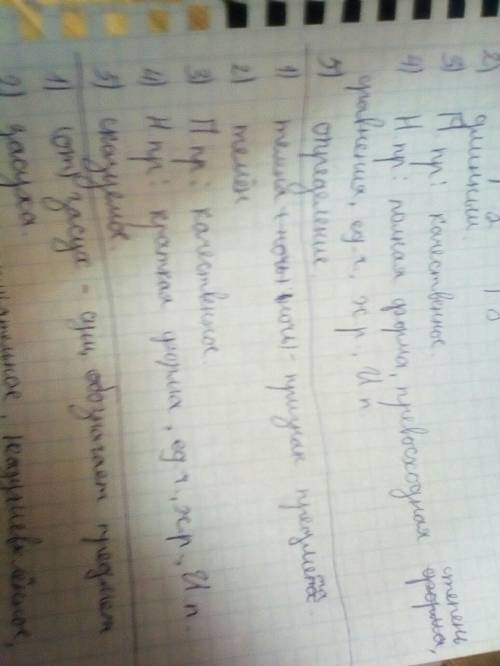 2) длинный.
3) П пр: качественное.
4) Н пр: полная форма, превосходная степень
сравнения, ед.ч, ж.р, И п форма,
5) определение.
1) темна (ночь) - признак предмета.
2) тёмен
3) П пр: качественное.
4) Н пр: краткая форма, ед.ч, ж.р, И п.
5) сказуемое
1) (от) засух - сущ, обозначает предмет
2) засуха.